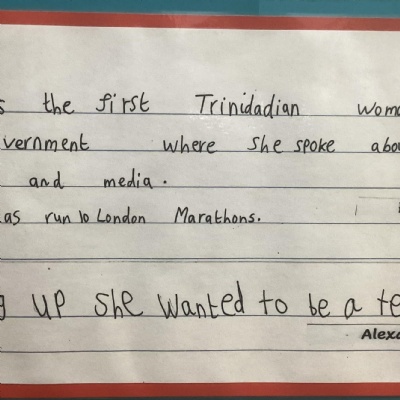 s the first Trinidadian wom
vernment where she spoke abou
and media.
as run 10 London Marathons.
g up she wanted to be a te
Alexa